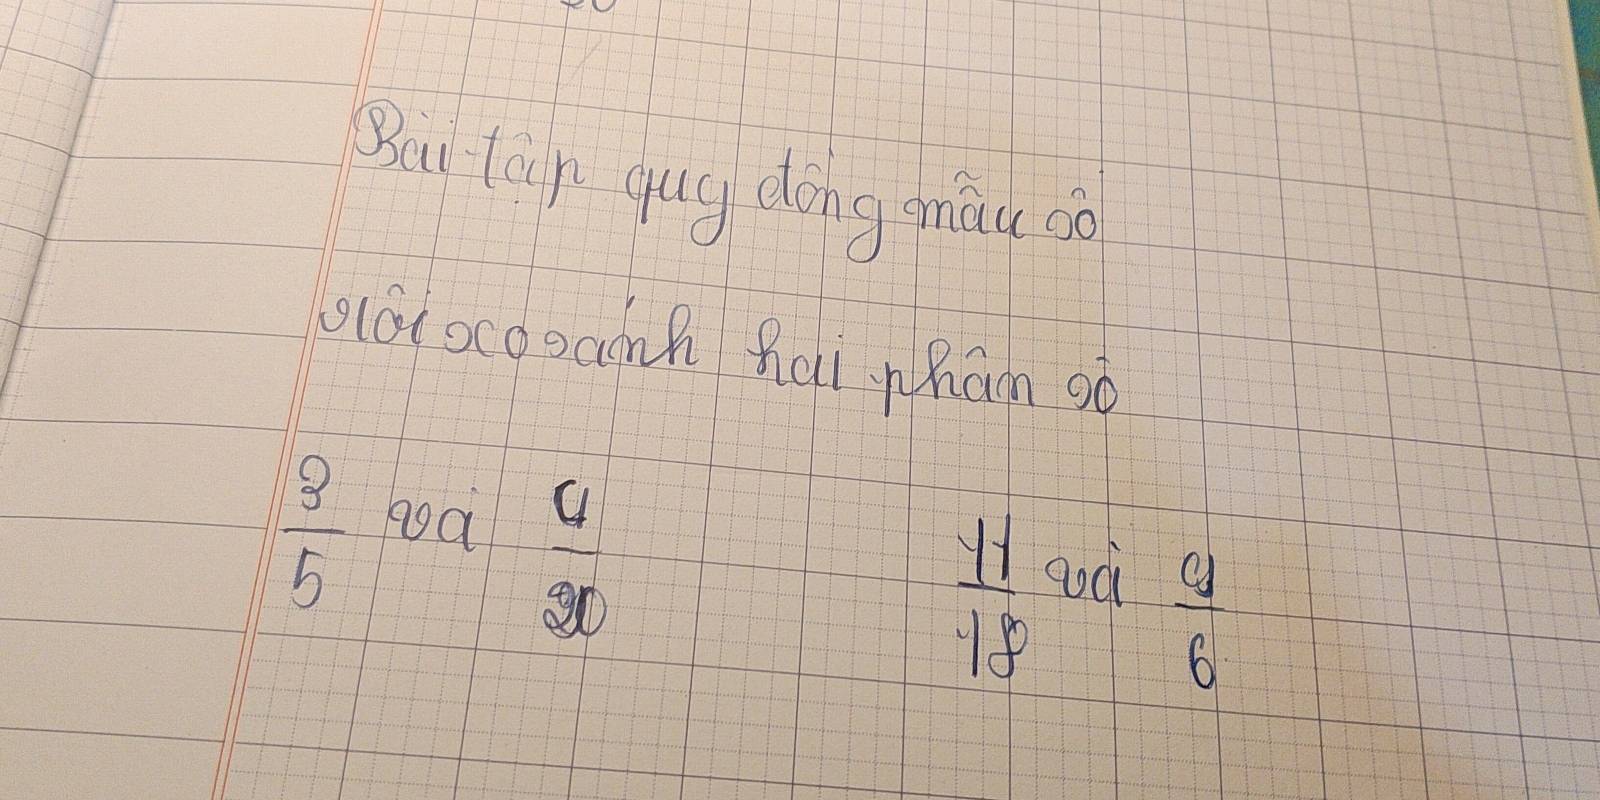 Bài tập quy đồng mẫu số
rồi so sánh hai phân số
3/5 và 4/20 11/18 và 9/6